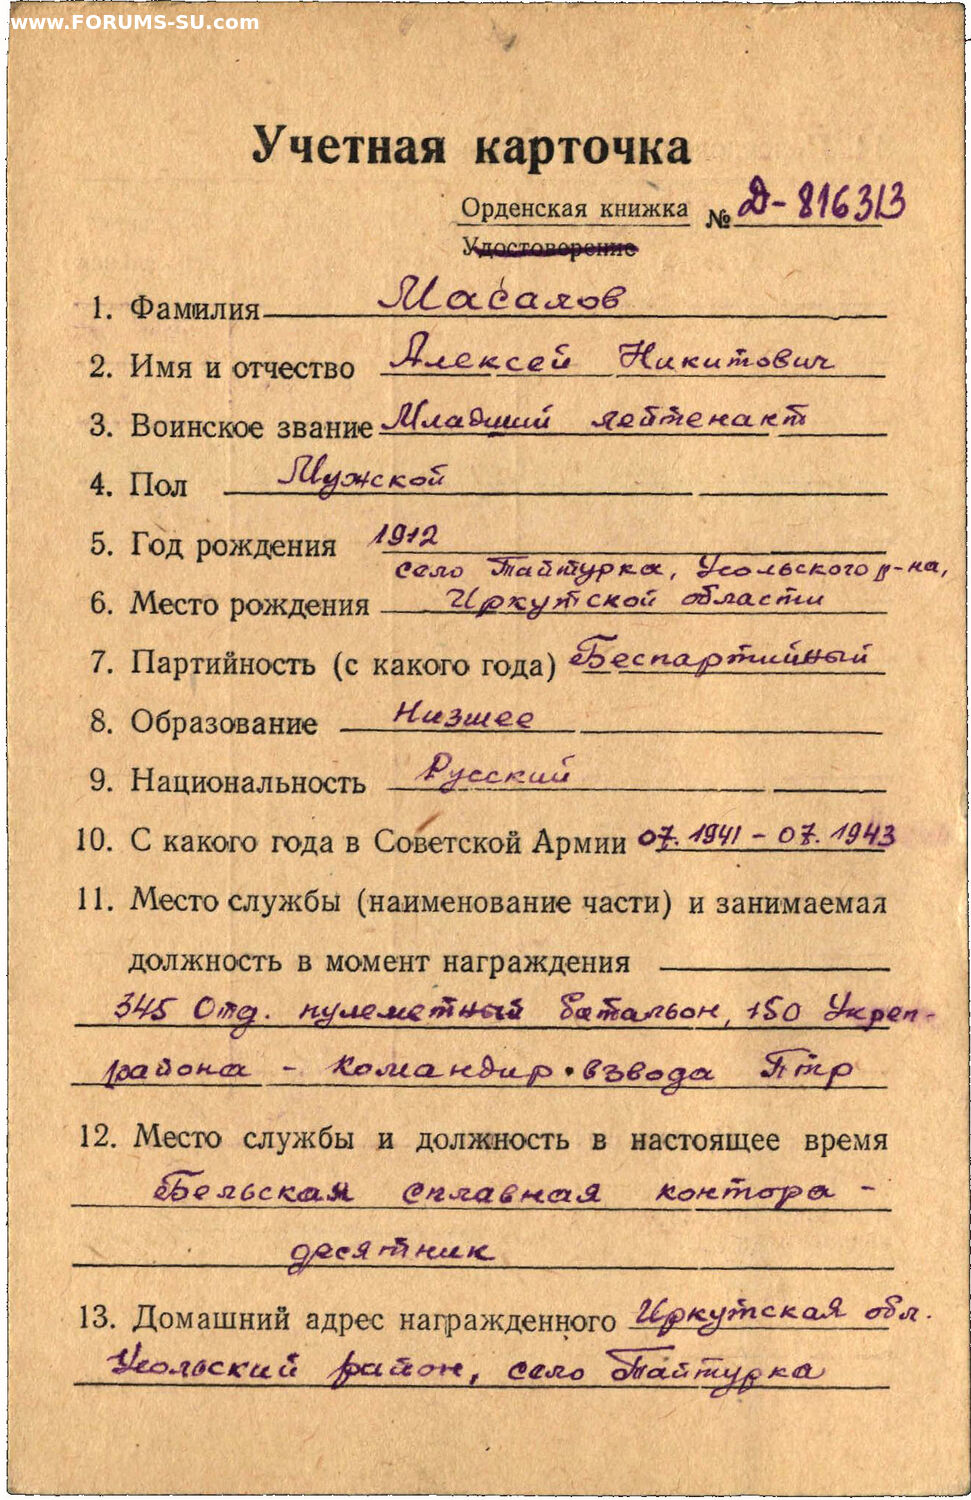 www.FORUMS-SU.com
Учетная карточка
Орденская книжка № Д-816313
Удостоверение
1. Фамилия Масалов
2. Имя и отчество Алексей Никитович
3. Воинское звание Младший лейтенант
4. Пол Мужской
5. Год рождения 1912
село Тайтурка, Усольского р-на,
6. Место рождения Иркутской области
7. Партийность (с какого года) Беспартийный
8. Образование Низшее
9. Национальность Русский
10. С какого года в Советской Армии 07.1941 - 07.1943
11. Место службы (наименование части) и занимаемая
должность в момент награждения
345 Отд. пулеметный батальон, 150 Укреп-
района - командир взвода Птр
12. Место службы и должность в настоящее время
Бельская сплавная контора -
десятник
13. Домашний адрес награжденного Иркутская обл.
Усольский район, село Тайтурка